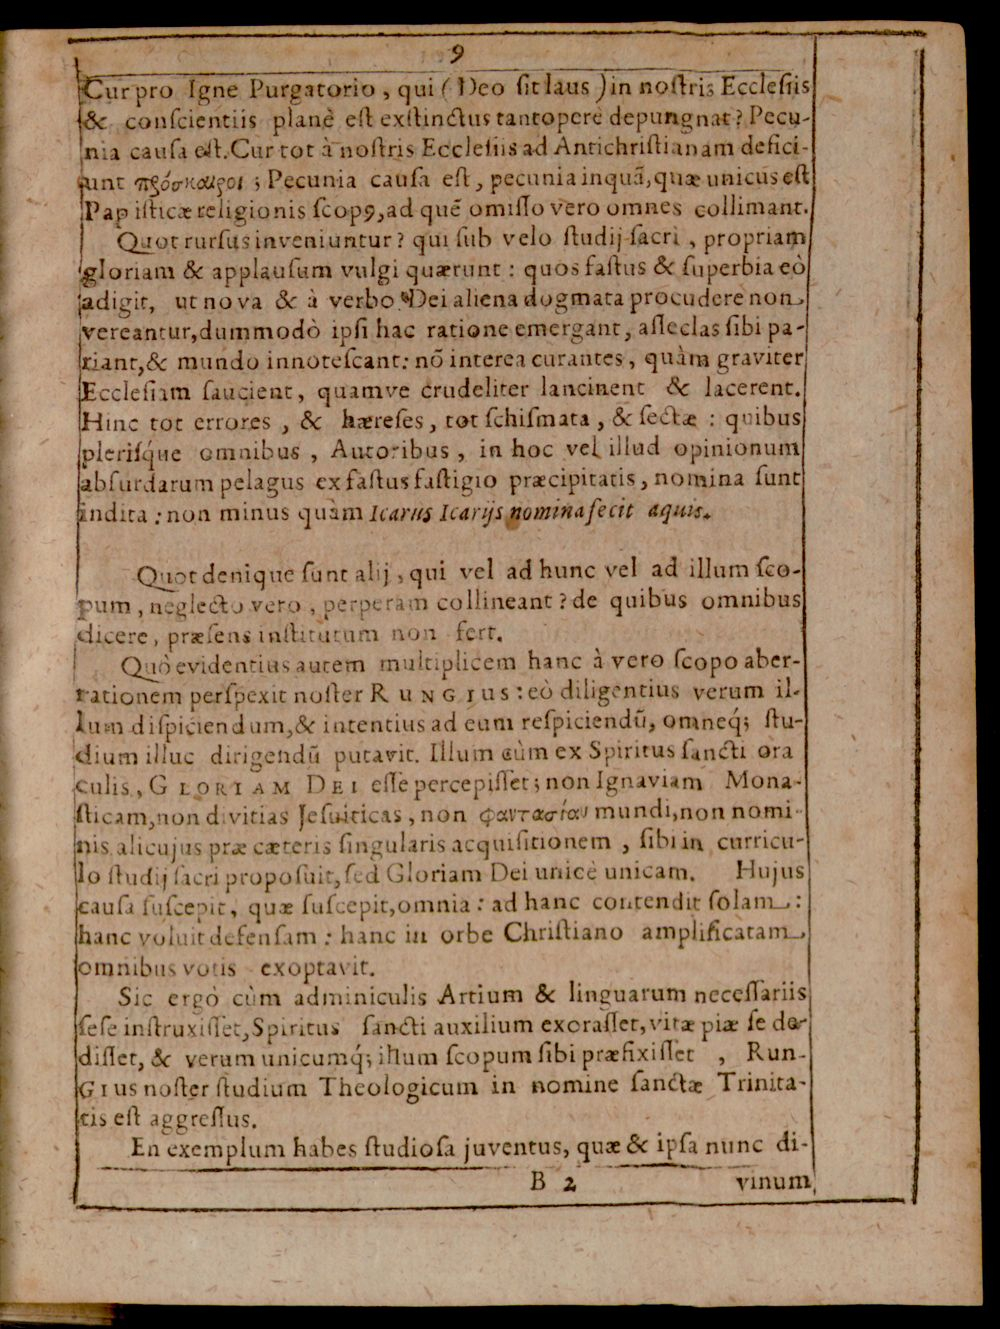 9
Cur pro Igne Purgatorio, qui (Deo sit laus) in nostris Ecclesiis
& conscientiis planè est exstinctus tantoperè depungnat? Pecu-
nia causa est. Cur tot à nostris Ecclesiis ad Antichristianam defici-
unt πρόσκαιροι; Pecunia causa est, pecunia inquã, quæ unicus est
Papisticæ religionis scopꝰ, ad quẽ omisso vero omnes collimant.
Quot rursus inveniuntur? qui sub velo studij sacri, propriam
gloriam & applausum vulgi quærunt: quos fastus & superbia eò
adigit, ut nova & à verbo Dei aliena dogmata procudere non
vereantur, dummodò ipsi hac ratione emergant, asseclas sibi pa-
riant, & mundo innotescant: nõ interea curantes, quàm graviter
Ecclesiam saucient, quamve crudeliter lancinent & lacerent.
Hinc tot errores, & hæreses, tot schismata, & sectæ: quibus
plerisq́ue omnibus, Autoribus, in hoc vel illud opinionum
absurdarum pelagus ex fastus fastigio præcipitatis, nomina sunt
indita: non minus quàm Icarus Icarijs nomina fecit aquis.
Quot denique sunt alij, qui vel ad hunc vel ad illum sco-
pum, neglecto vero, perperam collineant? de quibus omnibus
dicere, præsens institutum non fert.
Quò evidentius autem multiplicem hanc à vero scopo aber-
rationem perspexit noster RUNGIUS: eò diligentius verum il-
lum dispiciendum, & intentius ad eum respiciendũ, omneq́; stu-
dium illuc dirigendũ putavit. Illum cùm ex Spiritus sancti ora
culis, GLORIAM DEI esse percepisset; non Ignaviam Mona-
sticam, non divitias Jesuiticas, non φαντασίαν mundi, non nomi-
nis alicujus præ cæteris singularis acquisitionem, sibi in curricu-
lo studij sacri proposuit, sed Gloriam Dei unicè unicam. Hujus
causa suscepit, quæ suscepit, omnia: ad hanc contendit solam:
hanc voluit defensam: hanc in orbe Christiano amplificatam
omnibus votis exoptavit.
Sic ergò cùm adminiculis Artium & linguarum necessariis
sese instruxisset, Spiritus sancti auxilium exorasset, vitæ piæ se de-
disset, & verum unicumq́; illum scopum sibi præfixisset, RUN-
GIUS noster studium Theologicum in nomine sanctæ Trinita-
tis est aggressus.
En exemplum habes studiosa juventus, quæ & ipsa nunc di-
B 2 vinum